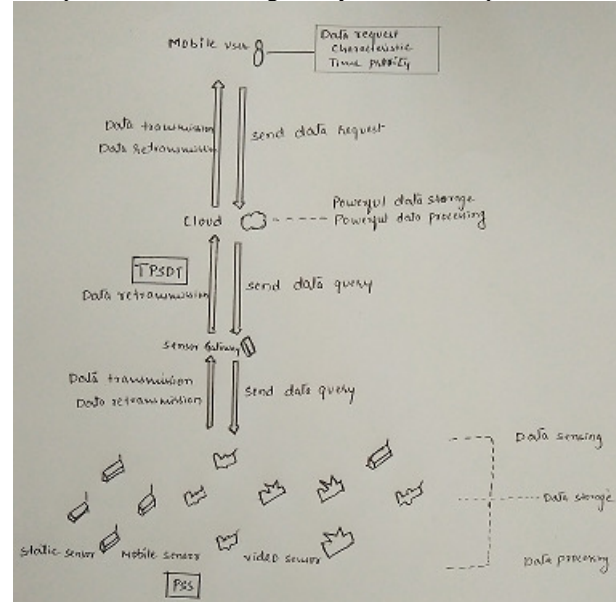 Data request
Mobile user
Characteristic
Time priority
Data transmission
Data retransmission
send data request
Powerful data storage
Cloud
Powerful data processing
TPSDT
Data retransmission
send data query
Sensor Gateway
Data transmission
Data retransmission
send data query
Data sensing
Data storage
Static sensor
Mobile sensor
video sensor
Data processing
PSS